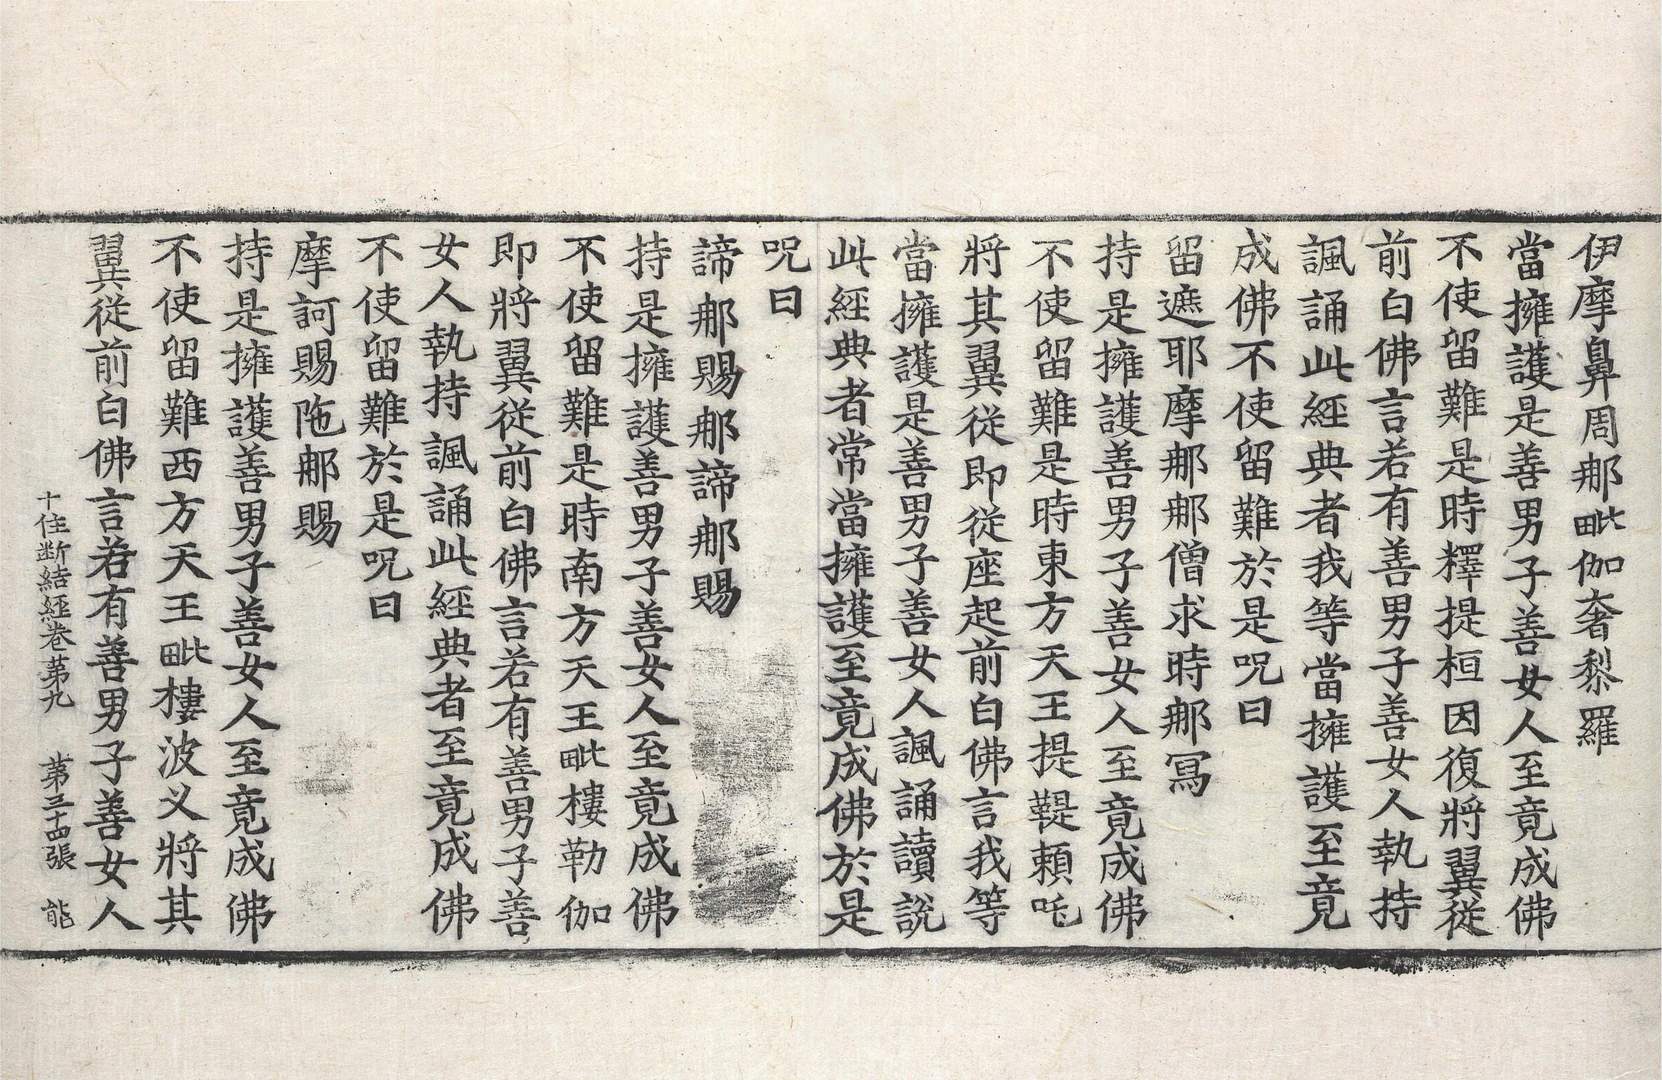 伊摩鼻周那毗伽奢黎羅
當擁護是善男子善女人至竟成佛
不使留難是時釋提桓因復將翼從
前白佛言若有善男子善女人執持
諷誦此經典者我等當擁護至竟
成佛不使留難於是呪曰
留遮耶摩那那僧求時那冩
持是擁護善男子善女人至竟成佛
不使留難是時東方天王提鞮賴吒
將其翼從即從座起前白佛言我等
當擁護是善男子善女人諷誦讀說
此經典者常當擁護至竟成佛於是
呪曰
諦那賜那諦那賜
持是擁護善男子善女人至竟成佛
不使留難是時南方天王毗樓勒伽
即將翼從前白佛言若有善男子善
女人執持諷誦此經典者至竟成佛
不使留難於是呪曰
摩訶賜陁那賜
持是擁護善男子善女人至竟成佛
不使留難西方天王毗樓波义將其
翼從前白佛言若有善男子善女人
十住断結經卷第九 第三十四張 能